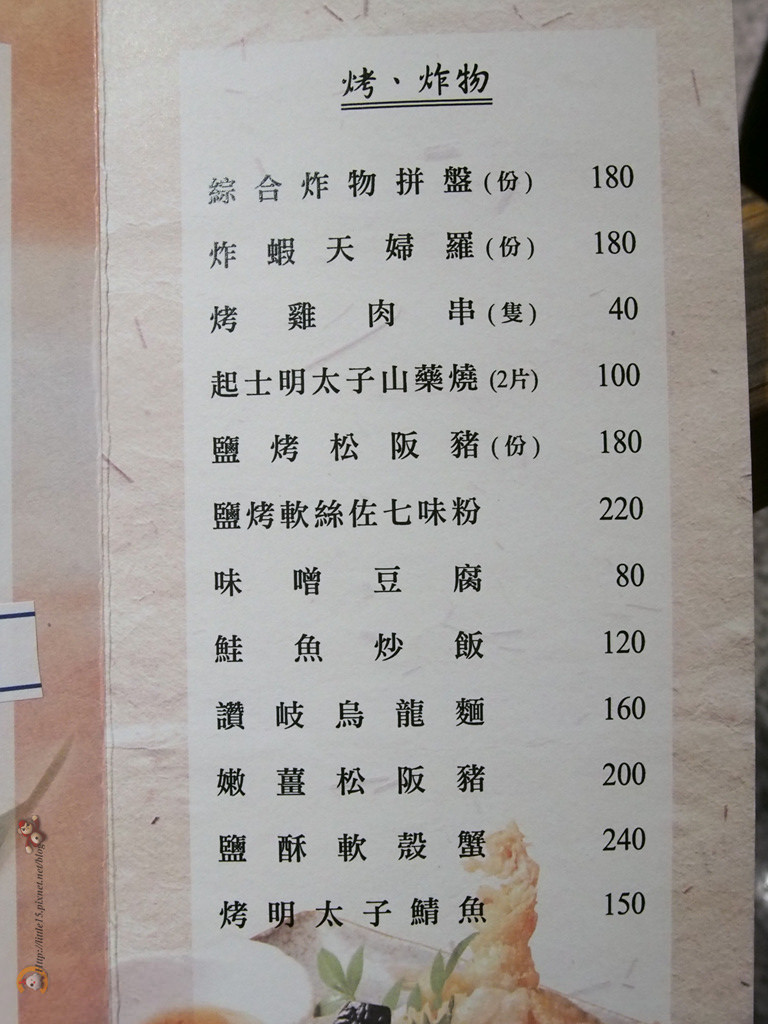 烤、炸物
綜合炸物拼盤(份) 180
炸蝦天婦羅(份) 180
烤雞肉串(隻) 40
起士明太子山藥燒(2片) 100
鹽烤松阪豬(份) 180
鹽烤軟絲佐七味粉 220
味噌豆腐 80
鮭魚炒飯 120
讚岐烏龍麵 160
嫩薑松阪豬 200
鹽酥軟殼蟹 240
烤明太子鯖魚 150
Http://little15.pixnet.net/blog